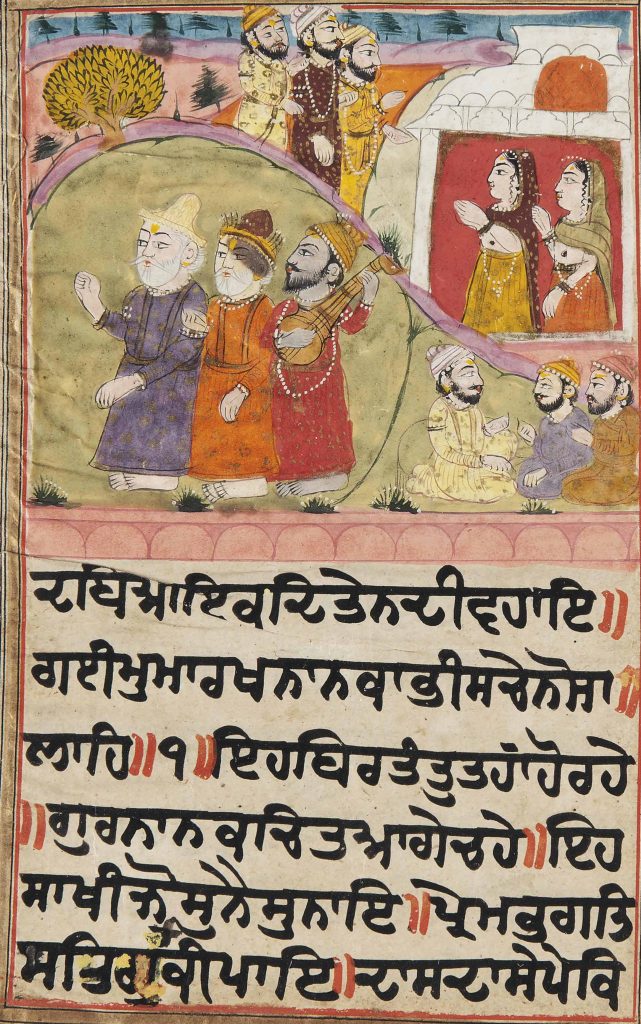 ਦਾਬਿਆਇਕਰਿਤੇਨਦੀਵਹਾਇ॥
ਗਈਮੁਮਾਰਖਨਾਨਕਾਭੀਸਚੇਨੋਸਾ॥
ਲਾਹਿ॥੧॥ਇਹਬਿਰਤੰਤੁਤਹਾਂਹੋਰਹੇ
॥ਗੁਰਨਾਨਕਾਚਿਤਆਗੇਚਹੇ॥ਇਹ
ਸਾਖੀਜੋਸੁਨੈਸੁਨਾਇ॥ਪ੍ਰੇਮਭੁਗਤਿ
ਸਤਿਗੁਰਕੀਪਾਇ॥ਦਾਸਦਾਸੇਪੇਵਿ